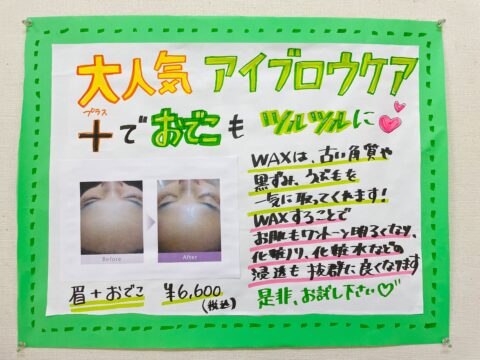 大人気 アイブロウケア
プラス
+でおでこもツルツルに♡
WAXは、古い角質や
黒ずみ、うぶ毛を
一気に取ってくれます!
WAXすることで
お肌もワントーン明るくなり、
化粧ノリ、化粧水などの
浸透も抜群に良くなります
是非、お試し下さい♡
Before
After
眉+おでこ ¥6,600
(税込)